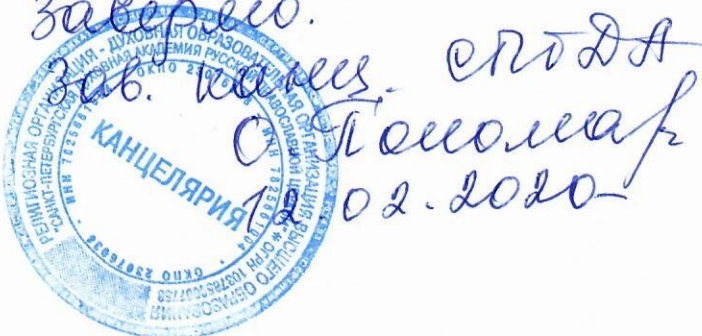 Заверено.
Зав. канц. СПбДА
О Пономар
12.02.2020
РЕЛИГИОЗНАЯ ОРГАНИЗАЦИЯ - ДУХОВНАЯ ОБРАЗОВАТЕЛЬНАЯ ОРГАНИЗАЦИЯ ВЫСШЕГО ОБРАЗОВАНИЯ
"САНКТ-ПЕТЕРБУРГСКАЯ ДУХОВНАЯ АКАДЕМИЯ РУССКОЙ ПРАВОСЛАВНОЙ
КАНЦЕЛЯРИЯ